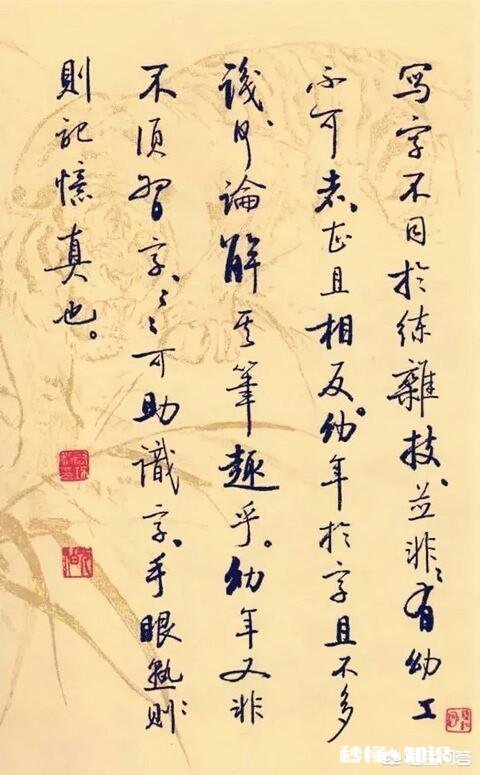 寫字不同於練雜技、並非有幼工
不可者、甚且相反。幼年於字且不多
識、何論解其筆趣乎。幼年又非
不須習字、習字可助識字、手眼熟
則記憶真也。
秒懂知识